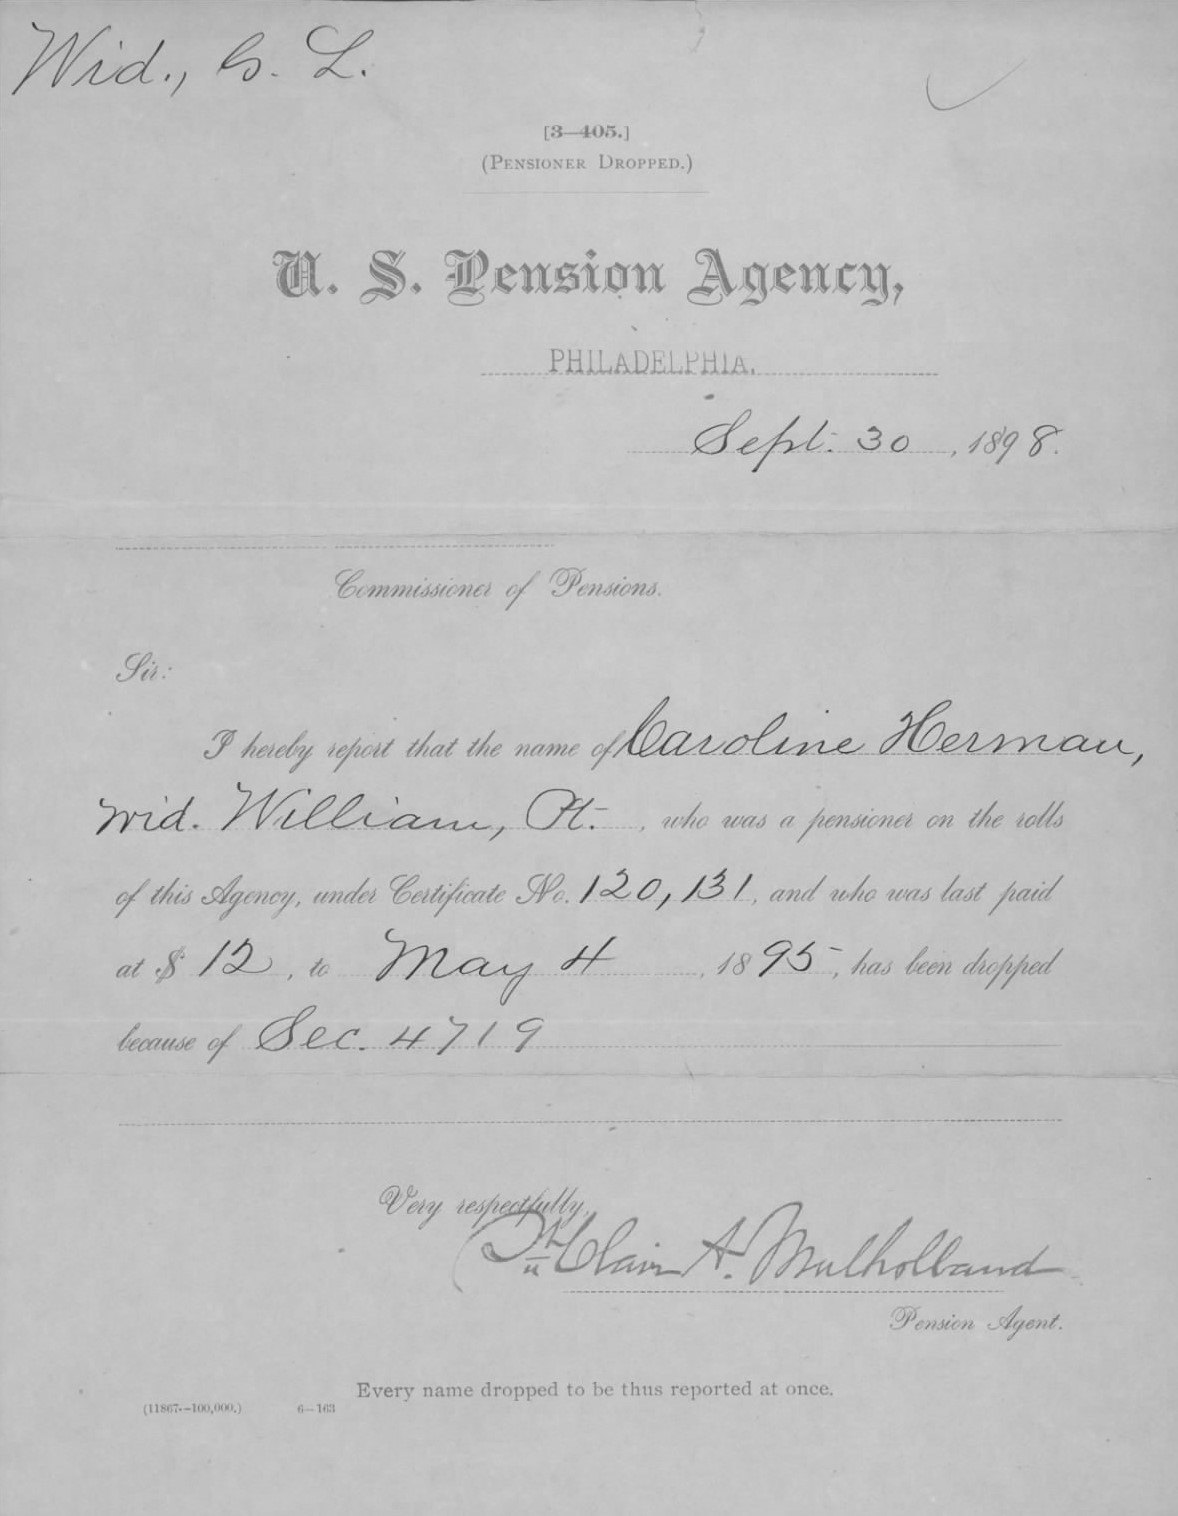 Wid., G. L.
[3—405.]
(Pensioner Dropped.)
U. S. Pension Agency,
PHILADELPHIA.
Sept. 30, 1898.
Commissioner of Pensions.
Sir:
I hereby report that the name of Caroline Herman,
wid. William, Pt., who was a pensioner on the rolls
of this Agency, under Certificate No. 120,131, and who was last paid
at $ 12, to May 4, 1895, has been dropped
because of Sec. 4719
Very respectfully,
St Clair A. Mulholland
Pension Agent.
Every name dropped to be thus reported at once.
(11867--100,000.) 6—163